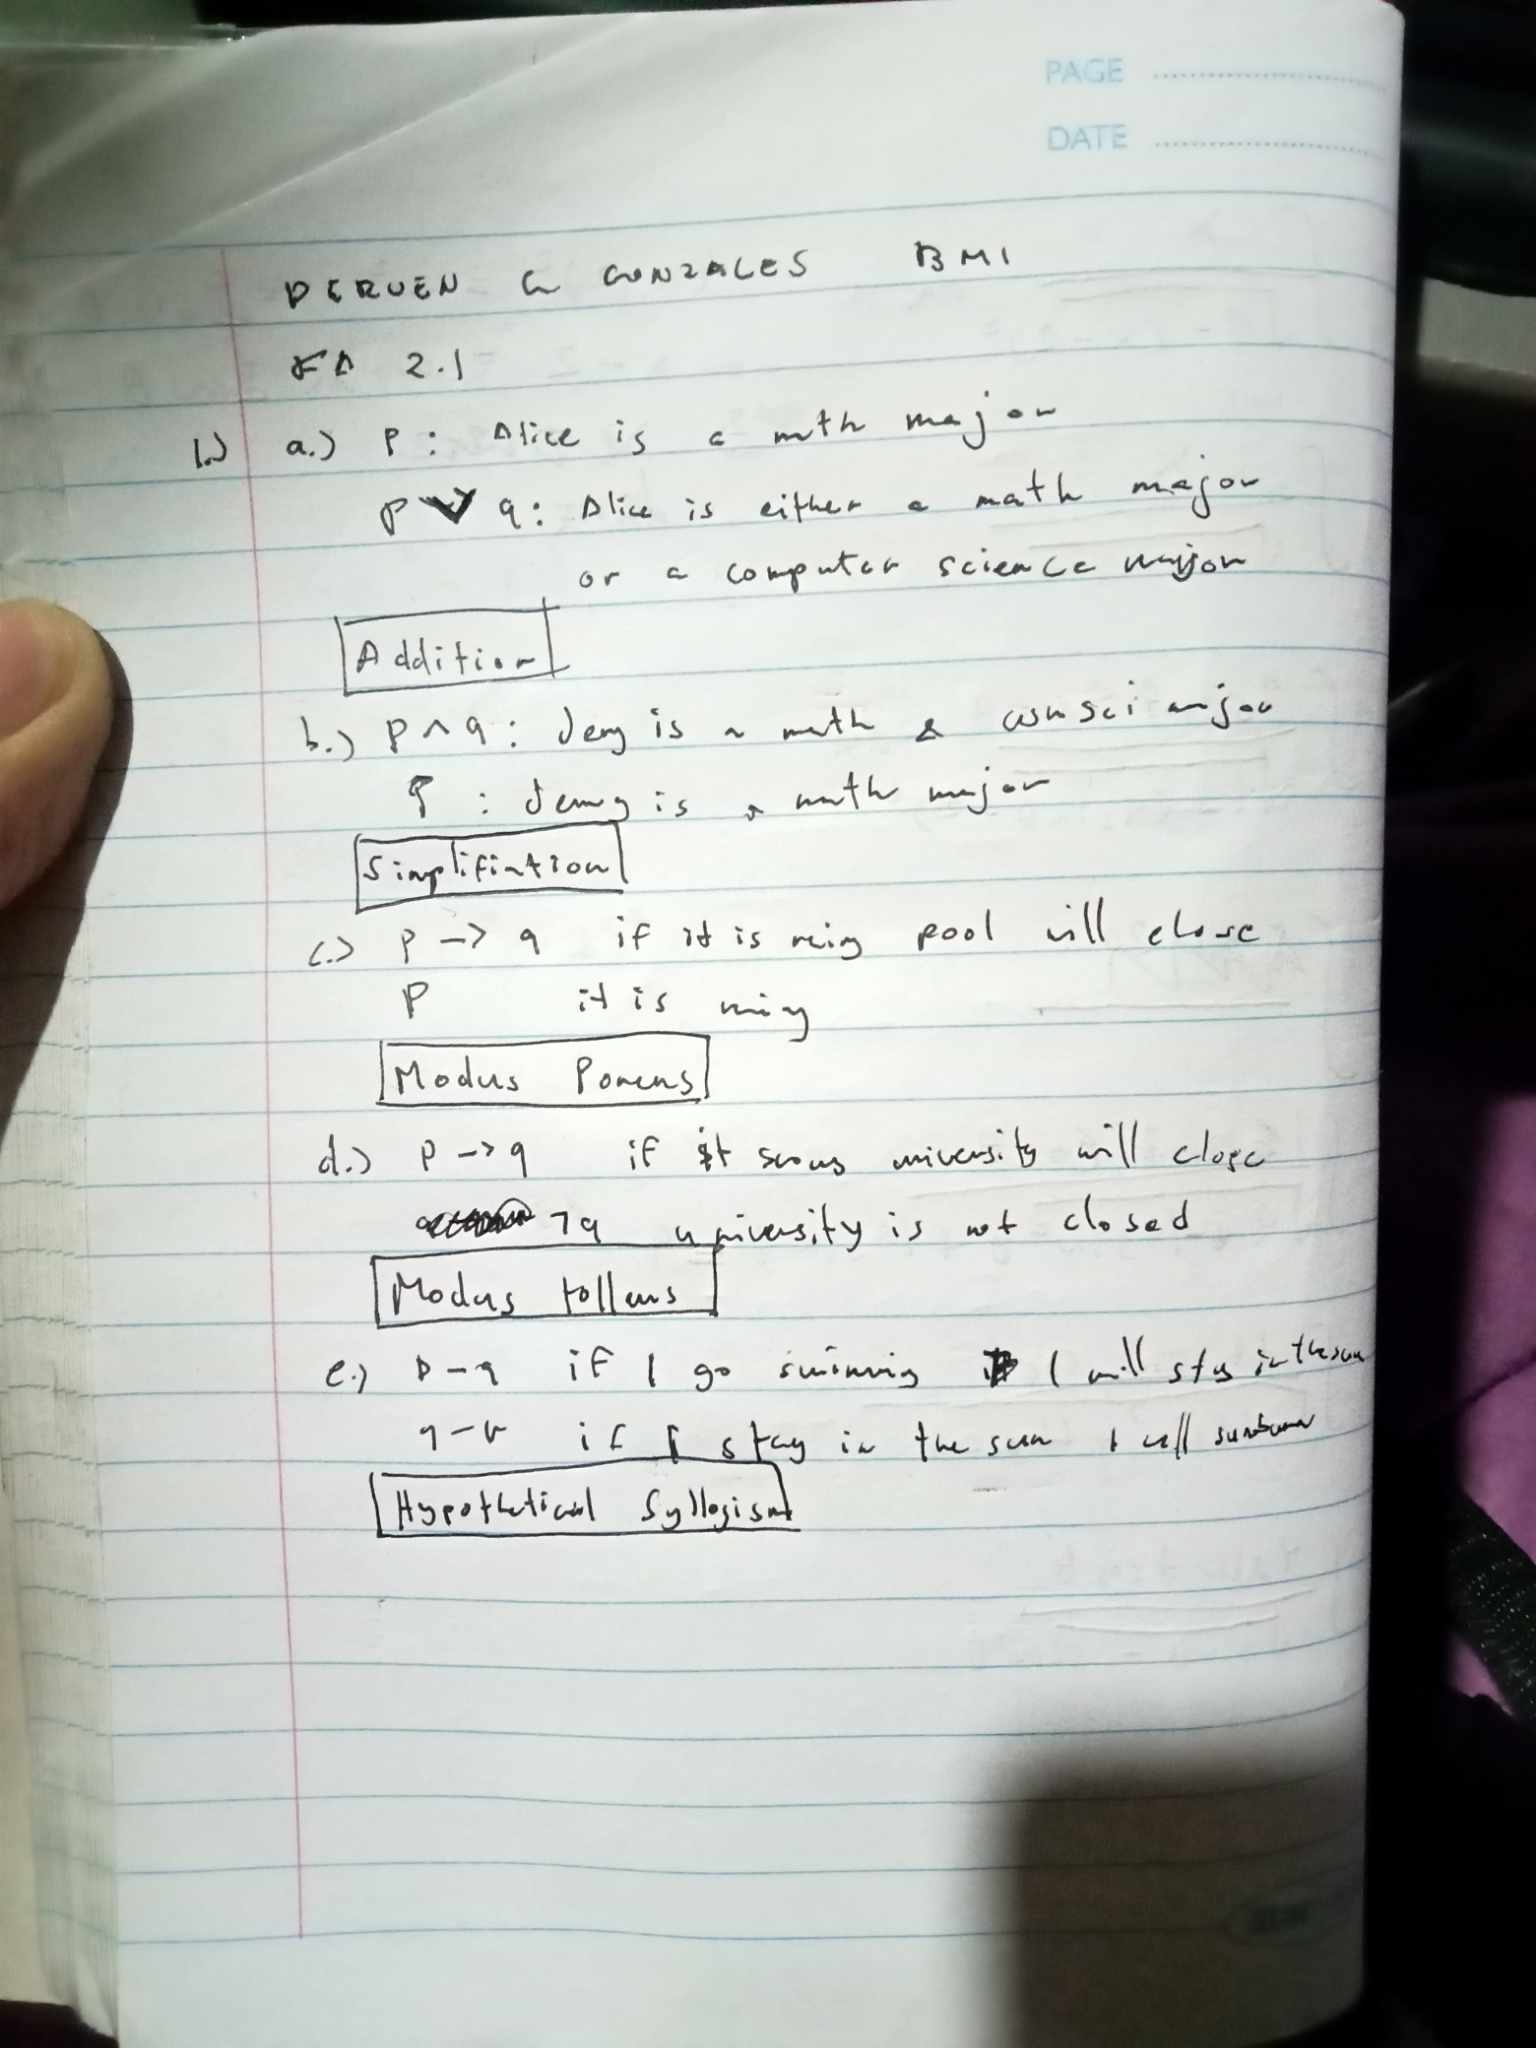 PAGE
DATE
DERVEN G GONZALES BM1
FA 2.1
1.) a.) P : Alice is a math major
p ∨ q : Alice is either a math major
or a computer science major
Addition
b.) p ∧ q : Jerry is a math & comsci major
: Jerry is a math major
c.) p -> q if it is raining pool will close
P it is raining
Modus Ponens
d.) p -> q if it snows university will close
¬q university is not closed
Modus tollens
e.) p - q if I go swimming I will stay in the sun
q - r if I stay in the sun I will sunburn
Hypothetical Syllogism